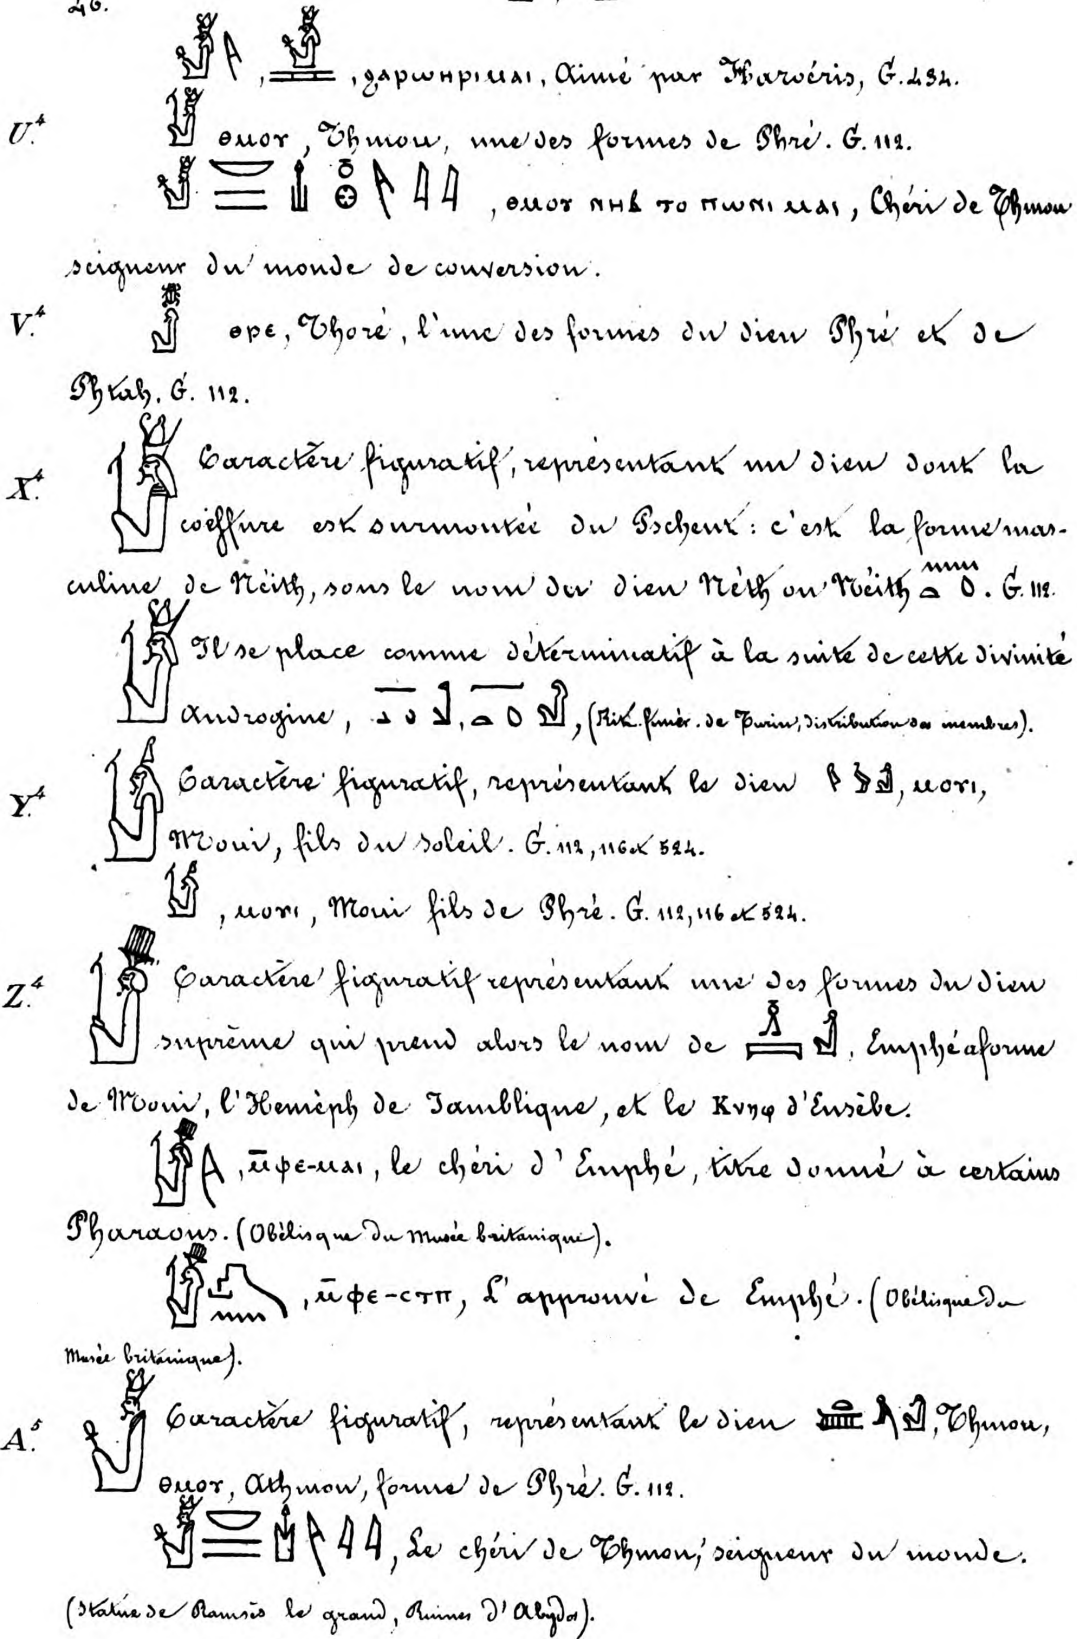 46.
, ϩⲁⲣⲱⲏⲣⲓⲙⲁⲓ, Aimé par Haroéris, G. 434.
U.⁴ ⲑⲙⲟⲩ, Thmou, une des formes de Phré. G. 112.
, ⲑⲙⲟⲩ ⲛⲏⲃ ⲧⲟ ⲡⲱⲛⲓ ⲙⲁⲓ, Chéri de Thmou
seigneur du monde de conversion.
V.⁴ ⲑⲣⲉ, Thoré, l'une des formes du dieu Phré et de
Phtah. G. 112.
X.⁴ Caractère figuratif, représentant un dieu dont la
coëffure est surmontée du Pschent : c'est la forme mas-
culine de Néith, sous le nom du dieu Néth ou Néith . G. 112.
Il se place comme déterminatif à la suite de cette divinité
Androgine, , (Rit. funér. de Turin, distribution des membres).
Y.⁴ Caractère figuratif, représentant le dieu , ⲙⲟⲩⲓ,
Moui, fils du soleil. G. 112, 116 et 524.
, ⲙⲟⲩⲓ, Moui fils de Phré. G. 112, 116 et 524.
Z.⁴ Caractère figuratif représentant une des formes du dieu
suprème qui prend alors le nom de , Emphé a forme
de Moui, l'Heméph de Iamblique, et le Κνηφ d'Eusèbe.
, ⲙ̅ⲫⲉ-ⲙⲁⲓ, le chéri d'Emphé, titre donné à certains
Pharaons. (Obélisque du Musée britanique).
, ⲙ̅ⲫⲉ-ⲥⲧⲡ, L'approuvé de Emphé. (Obélisque du
Musée britanique).
A.⁵ Caractère figuratif, représentant le dieu , Thmou,
ⲑⲙⲟⲩ, Athmou, forme de Phré. G. 112.
, Le chéri de Thmou, seigneur du monde.
(Statue de Ramsès le grand, Ruines d'Abydos).